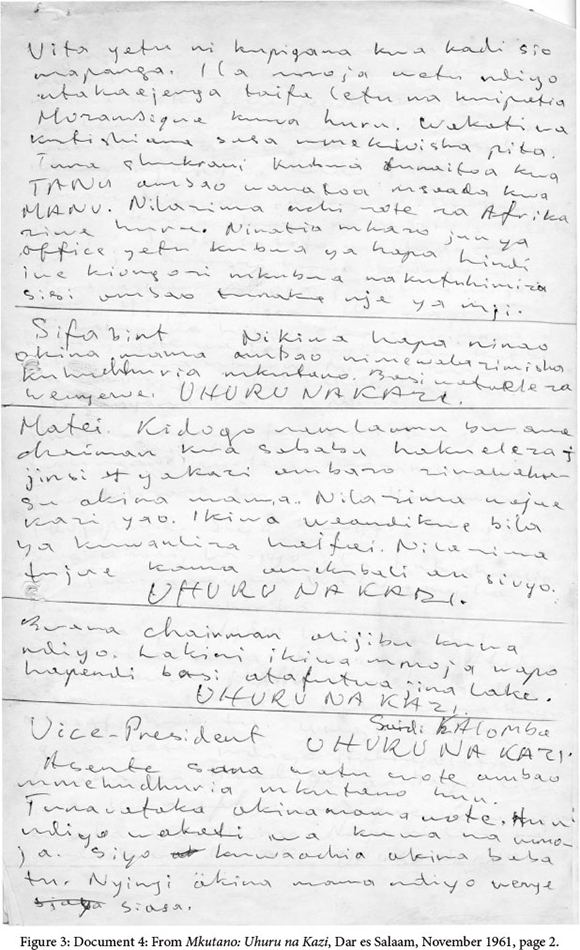 Vita yetu ni kupigana kwa kadi sio
mapanga. Ila umoja wetu ndiyo
utakaejenga taifa letu na kuipatia
Mozambique kuwa huru. Wakati wa
kutishiana sasa umekwisha pita.
Tuna shukrani kubwa tunaitoa kwa
TANU ambao wanatoa msaada kwa
MANU. Nilazima nchi zote za Afrika
ziwe huru. Ninatia mkazo juu ya
office yetu kubwa ya hapa hindi
iue kiongozi mkubwa wakutuhimiza
sisi ambao nje ya mji.
Sifabint Nikiwa hapa ninao
akina mama ambao nimewalazimisha
kuhudhuria mkutano. Basi
wenyewe. UHURU NA KAZI.
Matei. Kidogo namlaumu bwana
chaiman kwa sababu hakueleza
jinsi ya kazi ambazo
akina mama. Nilazima wajue
kazi yao. Ikiwa weandikwe bila
ya kuwauliza haifai. Nilazima
tujue kama amekubali au sivyo.
UHURU NA KAZI.
Bwana chairman alijibu kuwa
ndiyo. Lakini ikiwa mmoja wapo
hapendi basi atafutwa jina lake.
UHURU NA KAZI.
Saidi KALOMBA
Vice-President UHURU NA KAZI.
Asente sana watu wote ambao
mmehudhuria mkutano huu.
Tunawataka akinamama wote. Huu
ndiyo wakati wa kuwa na umo-
ja. Siyo kuwaachia akina baba
tu. Nyingi akina mama ndiyo wenye
siasa.
Figure 3: Document 4: From Mkutano: Uhuru na Kazi, Dar es Salaam, November 1961, page 2.